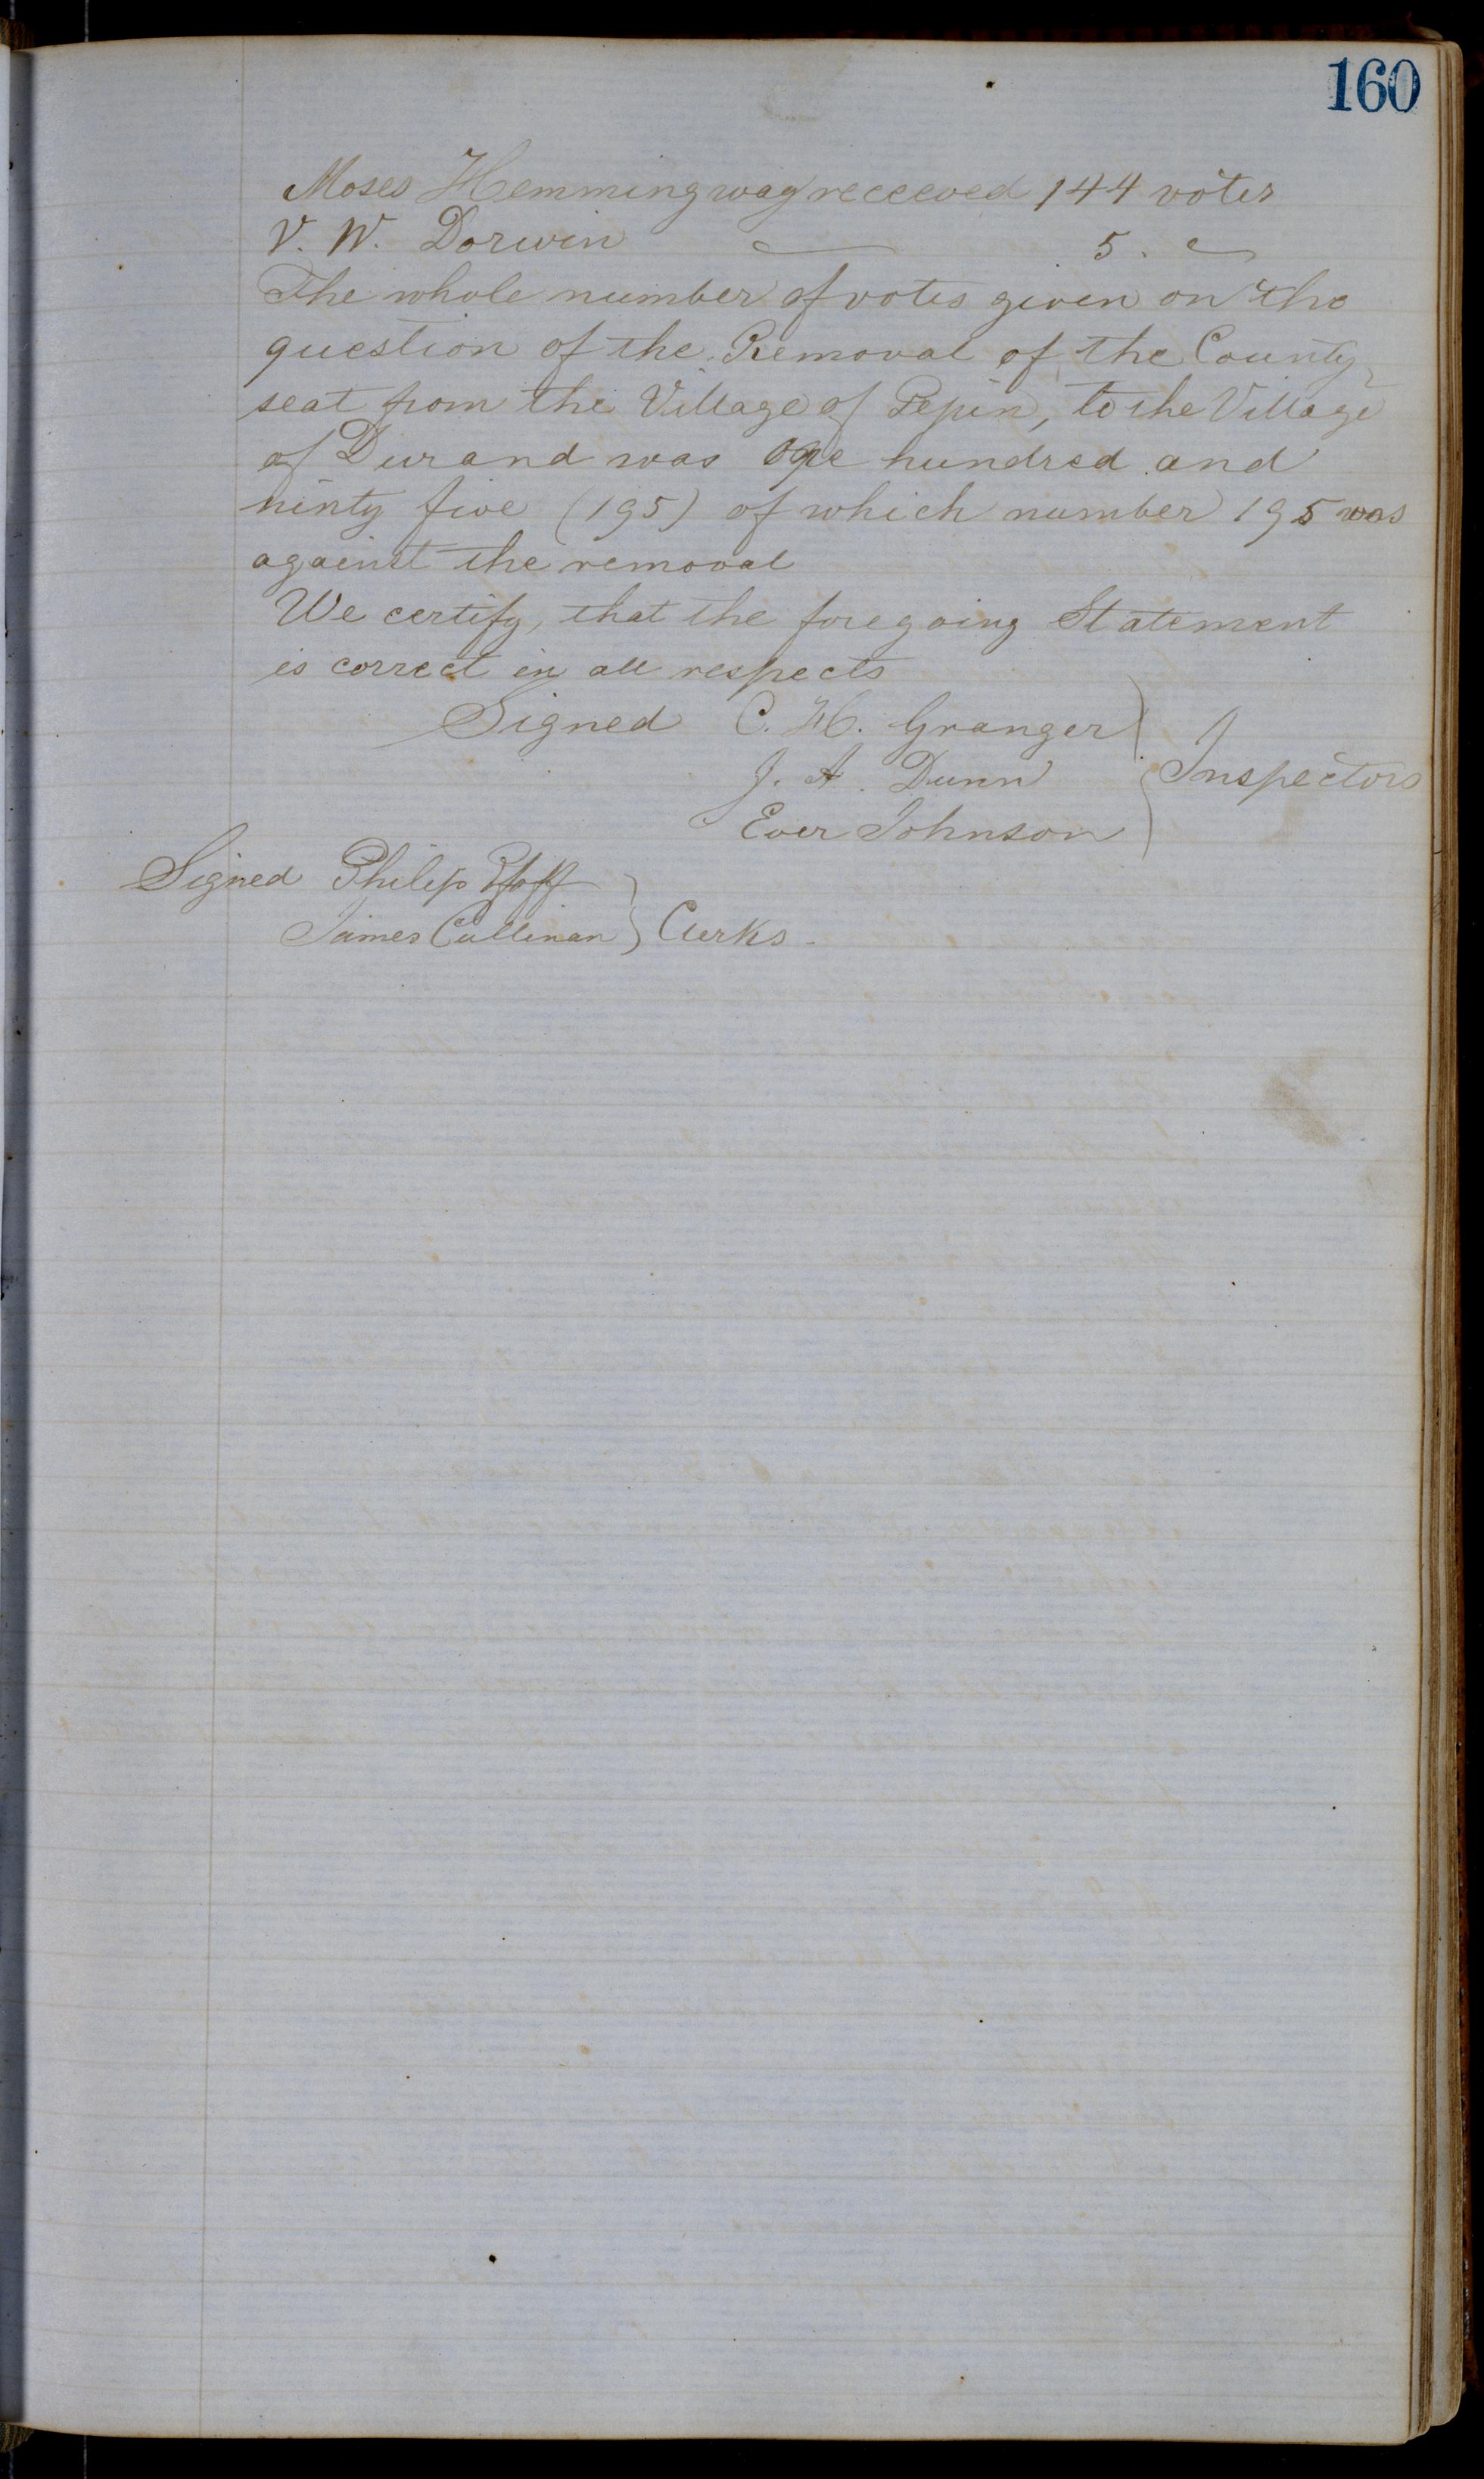 160
Moses Hemmingway received 144 votes
V. W. Dorwin — 5. "
The whole number of votes given on the
question of the Removal of the County
seat from the Village of Pepin, to the Village
of Durand was One hundred and
ninty five (195) of which number 195 was
against the removal
We certify, that the foregoing Statement
is correct in all respects
Signed C. H. Granger
J. A. Dunn } Inspectors
Ever Johnson
Signed Philip Pfaff
James Cullinan } Clerks.